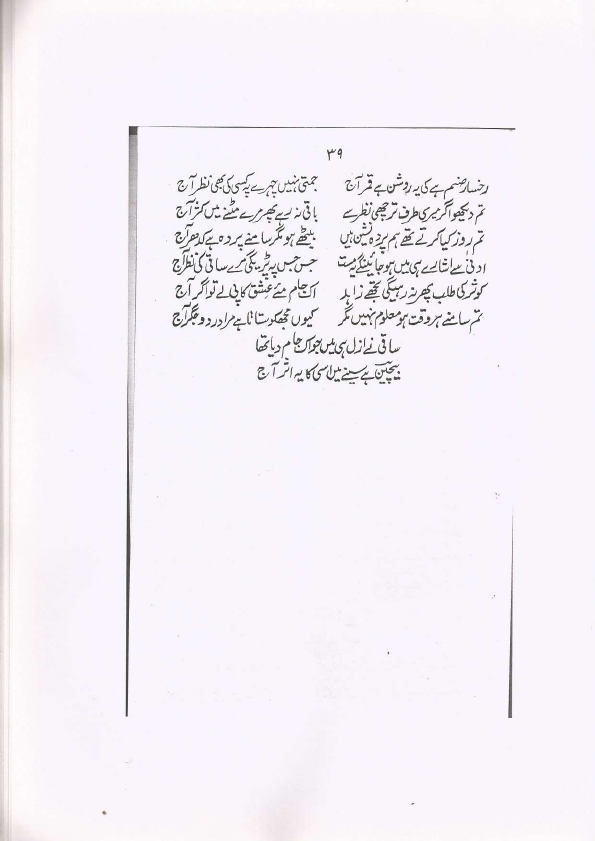 ۳۹
رخسار صنم ہے کی یہ روشن ہے قمر آج جمتی نہیں چہرے پہ کسی کی بھی نظر آج
تم دیکھو اگر میری طرف ترچھی نظر سے باقی نہ رہے پھر مرے مٹنے میں کسر آج
تم روز کیا کرتے تھے ہم پردہ نشین ہیں بیٹھے ہو مگر سامنے پردہ ہے کدھر آج
ادنیٰ سے اشارے ہی میں ہو جائینگے مست جس جس پہ پڑیگی مرے ساقی کی نظر آج
کوثر کی طلب پھر نہ رہیگی تجھے زاہد اک جام مئے عشق کا پی لے تو اگر آج
تم سامنے ہر وقت ہو معلوم نہیں مگر کیوں مجھکو ستاتا ہے مرا درد جگر آج
ساقی نے ازل ہی میں جو اک جام دیا تھا
بیچین ہے سینے میں اسی کا یہ اثر آج